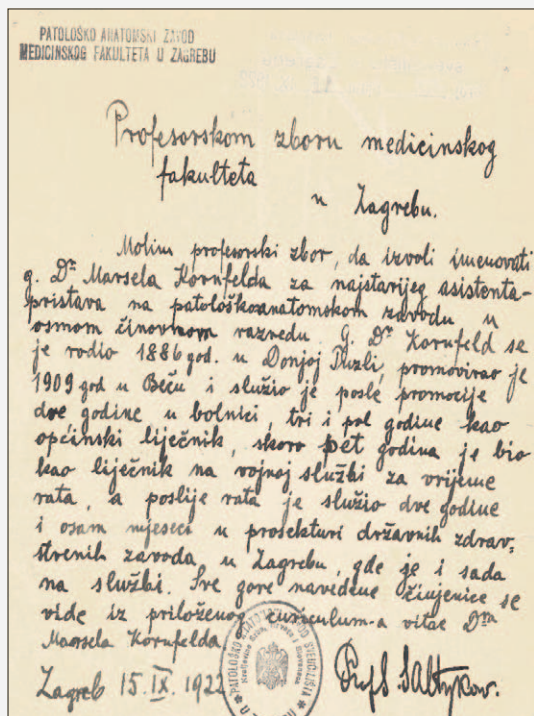 PATOLOŠKO ANATOMSKI ZAVOD
MEDICINSKOG FAKULTETA U ZAGREBU
Profesorskom zboru medicinskog
fakulteta
u Zagrebu.
Molim profesorski zbor, da izvoli imenovati
g. Dr Marsela Kornfelda za najstarijeg asistenta-
pristava na patološkoanatomskom zavodu u
osmom činovnom razredu. G. Dr Kornfeld se
je rodio 1886 god. u Donjoj Tuzli, promovirao je
1909 god u Beču i služio je posle promocije
dve godine u bolnici, tri i pol godine kao
općinski liječnik, skoro pet godina je bio
kao liječnik na vojnoj službi za vrijeme
rata, a poslije rata je služio dve godine
i osam mjeseci u prosekturi državnih zdrav=
stvenih zavoda u Zagrebu, gde je i sada
na službi. Sve gore navedene činjenice se
vide iz priloženog curiculum-a vitae Dra
Marsela Kornfelda.
Zagreb 15. IX. 1922
Prof S. Saltykow.